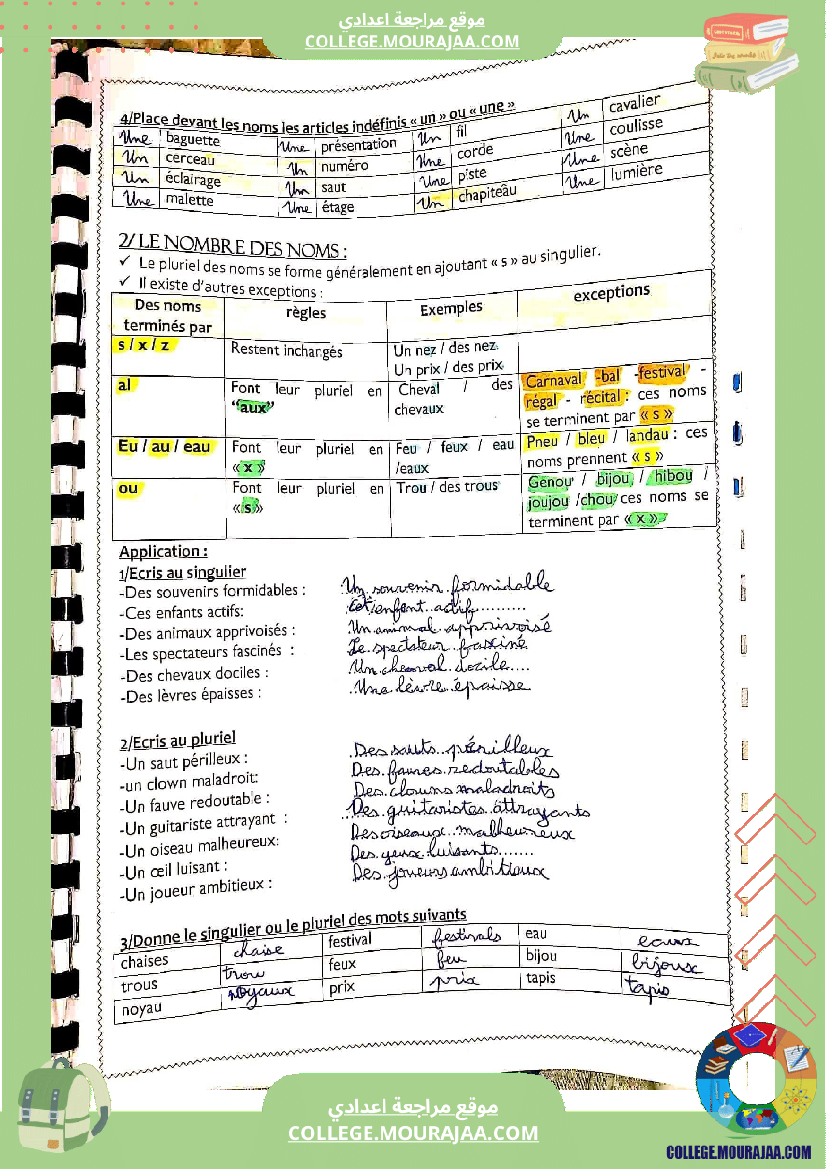 موقع مراجعة اعدادي
COLLEGE.MOURAJAA.COM
4/Place devant les noms les articles indéfinis « un » ou « une »
Une baguette Une présentation Un fil Un cavalier
Un cerceau Un numéro Une corde Une coulisse
Un éclairage Un saut Une piste Une scène
Une malette Une étage Un chapiteau Une lumière
2/ LE NOMBRE DES NOMS :
✓ Le pluriel des noms se forme généralement en ajoutant « s » au singulier.
✓ Il existe d'autres exceptions :
Des noms terminés par règles Exemples exceptions
s / x / z Restent inchangés Un nez / des nez
Un prix / des prix
al Font leur pluriel en "aux" Cheval / des chevaux Carnaval -bal -festival - régal - récital : ces noms se terminent par « s »
Eu / au / eau Font leur pluriel en « x » Feu / feux / eau /eaux Pneu / bleu / landau : ces noms prennent « s »
ou Font leur pluriel en « s» Trou / des trous Genou / bijou / hibou / joujou /chou ces noms se terminent par « x »
Application :
1/Ecris au singulier
-Des souvenirs formidables : Un souvenir formidable
-Ces enfants actifs: Cet enfant actif..........
-Des animaux apprivoisés : Un animal apprivoisé
-Les spectateurs fascinés : Le spectateur fasciné
-Des chevaux dociles : Un cheval docile....
-Des lèvres épaisses : Une lèvre épaisse
2/Ecris au pluriel
-Un saut périlleux : Des sauts périlleux
-un clown maladroit: Des fauves redoutables
-Un fauve redoutable : Des clowns maladroits
-Un guitariste attrayant : Des guitaristes attrayants
-Un oiseau malheureux: Des oiseaux malheureux
-Un œil luisant : Des yeux luisants.......
-Un joueur ambitieux : Des joueurs ambitieux
3/Donne le singulier ou le pluriel des mots suivants
chaises chaise festival festivals eau eaux
trous trou feux feu bijou bijoux
noyau noyaux prix prix tapis tapis
موقع مراجعة اعدادي
COLLEGE.MOURAJAA.COM
COLLEGE.MOURAJAA.COM